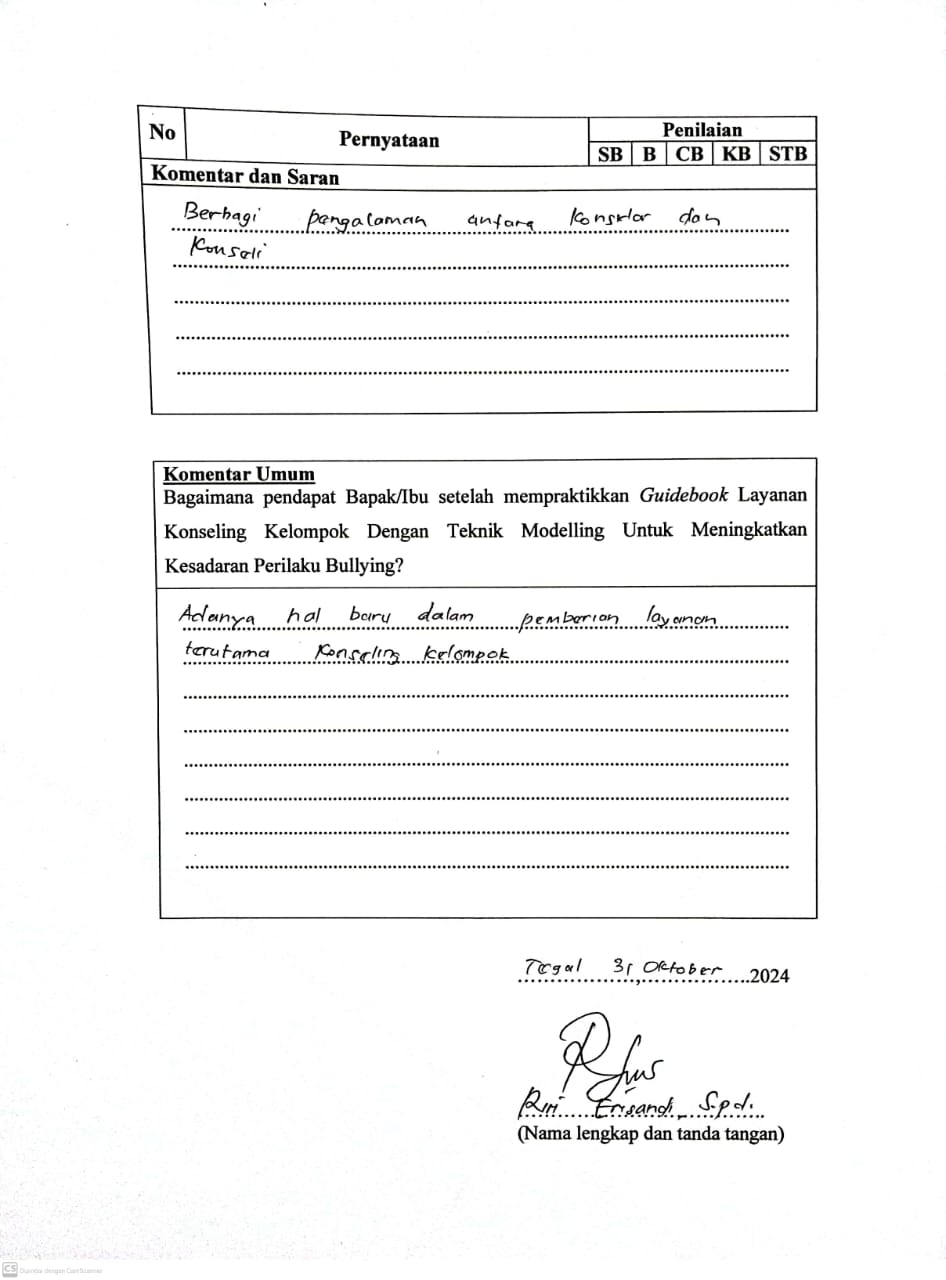 No Pernyataan Penilaian
SB B CB KB STB
Komentar dan Saran
Berbagi pengalaman antara Konselor dan
Konseli
Komentar Umum
Bagaimana pendapat Bapak/Ibu setelah mempraktikkan Guidebook Layanan
Konseling Kelompok Dengan Teknik Modelling Untuk Meningkatkan
Kesadaran Perilaku Bullying?
Adanya hal baru dalam pemberian layanan
terutama Konseling kelompok
Tegal 31 Oktober 2024
Riri Erisandi, S.pd.
(Nama lengkap dan tanda tangan)
CS Dipindai dengan CamScanner